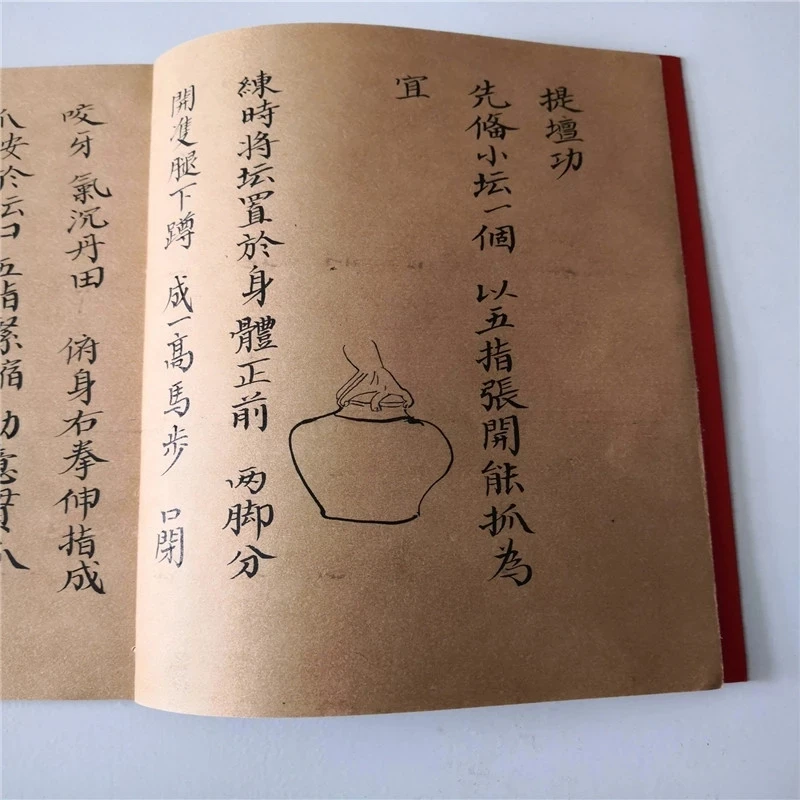 提壇功
先俻小坛一個 以五指張開能抓為
宜
練時将坛置於身體正前 两脚分
開隻腿下蹲 成一高馬步 口閉
咬牙 氣沉丹田 俯身右拳伸指成
爪安於坛口 五指緊